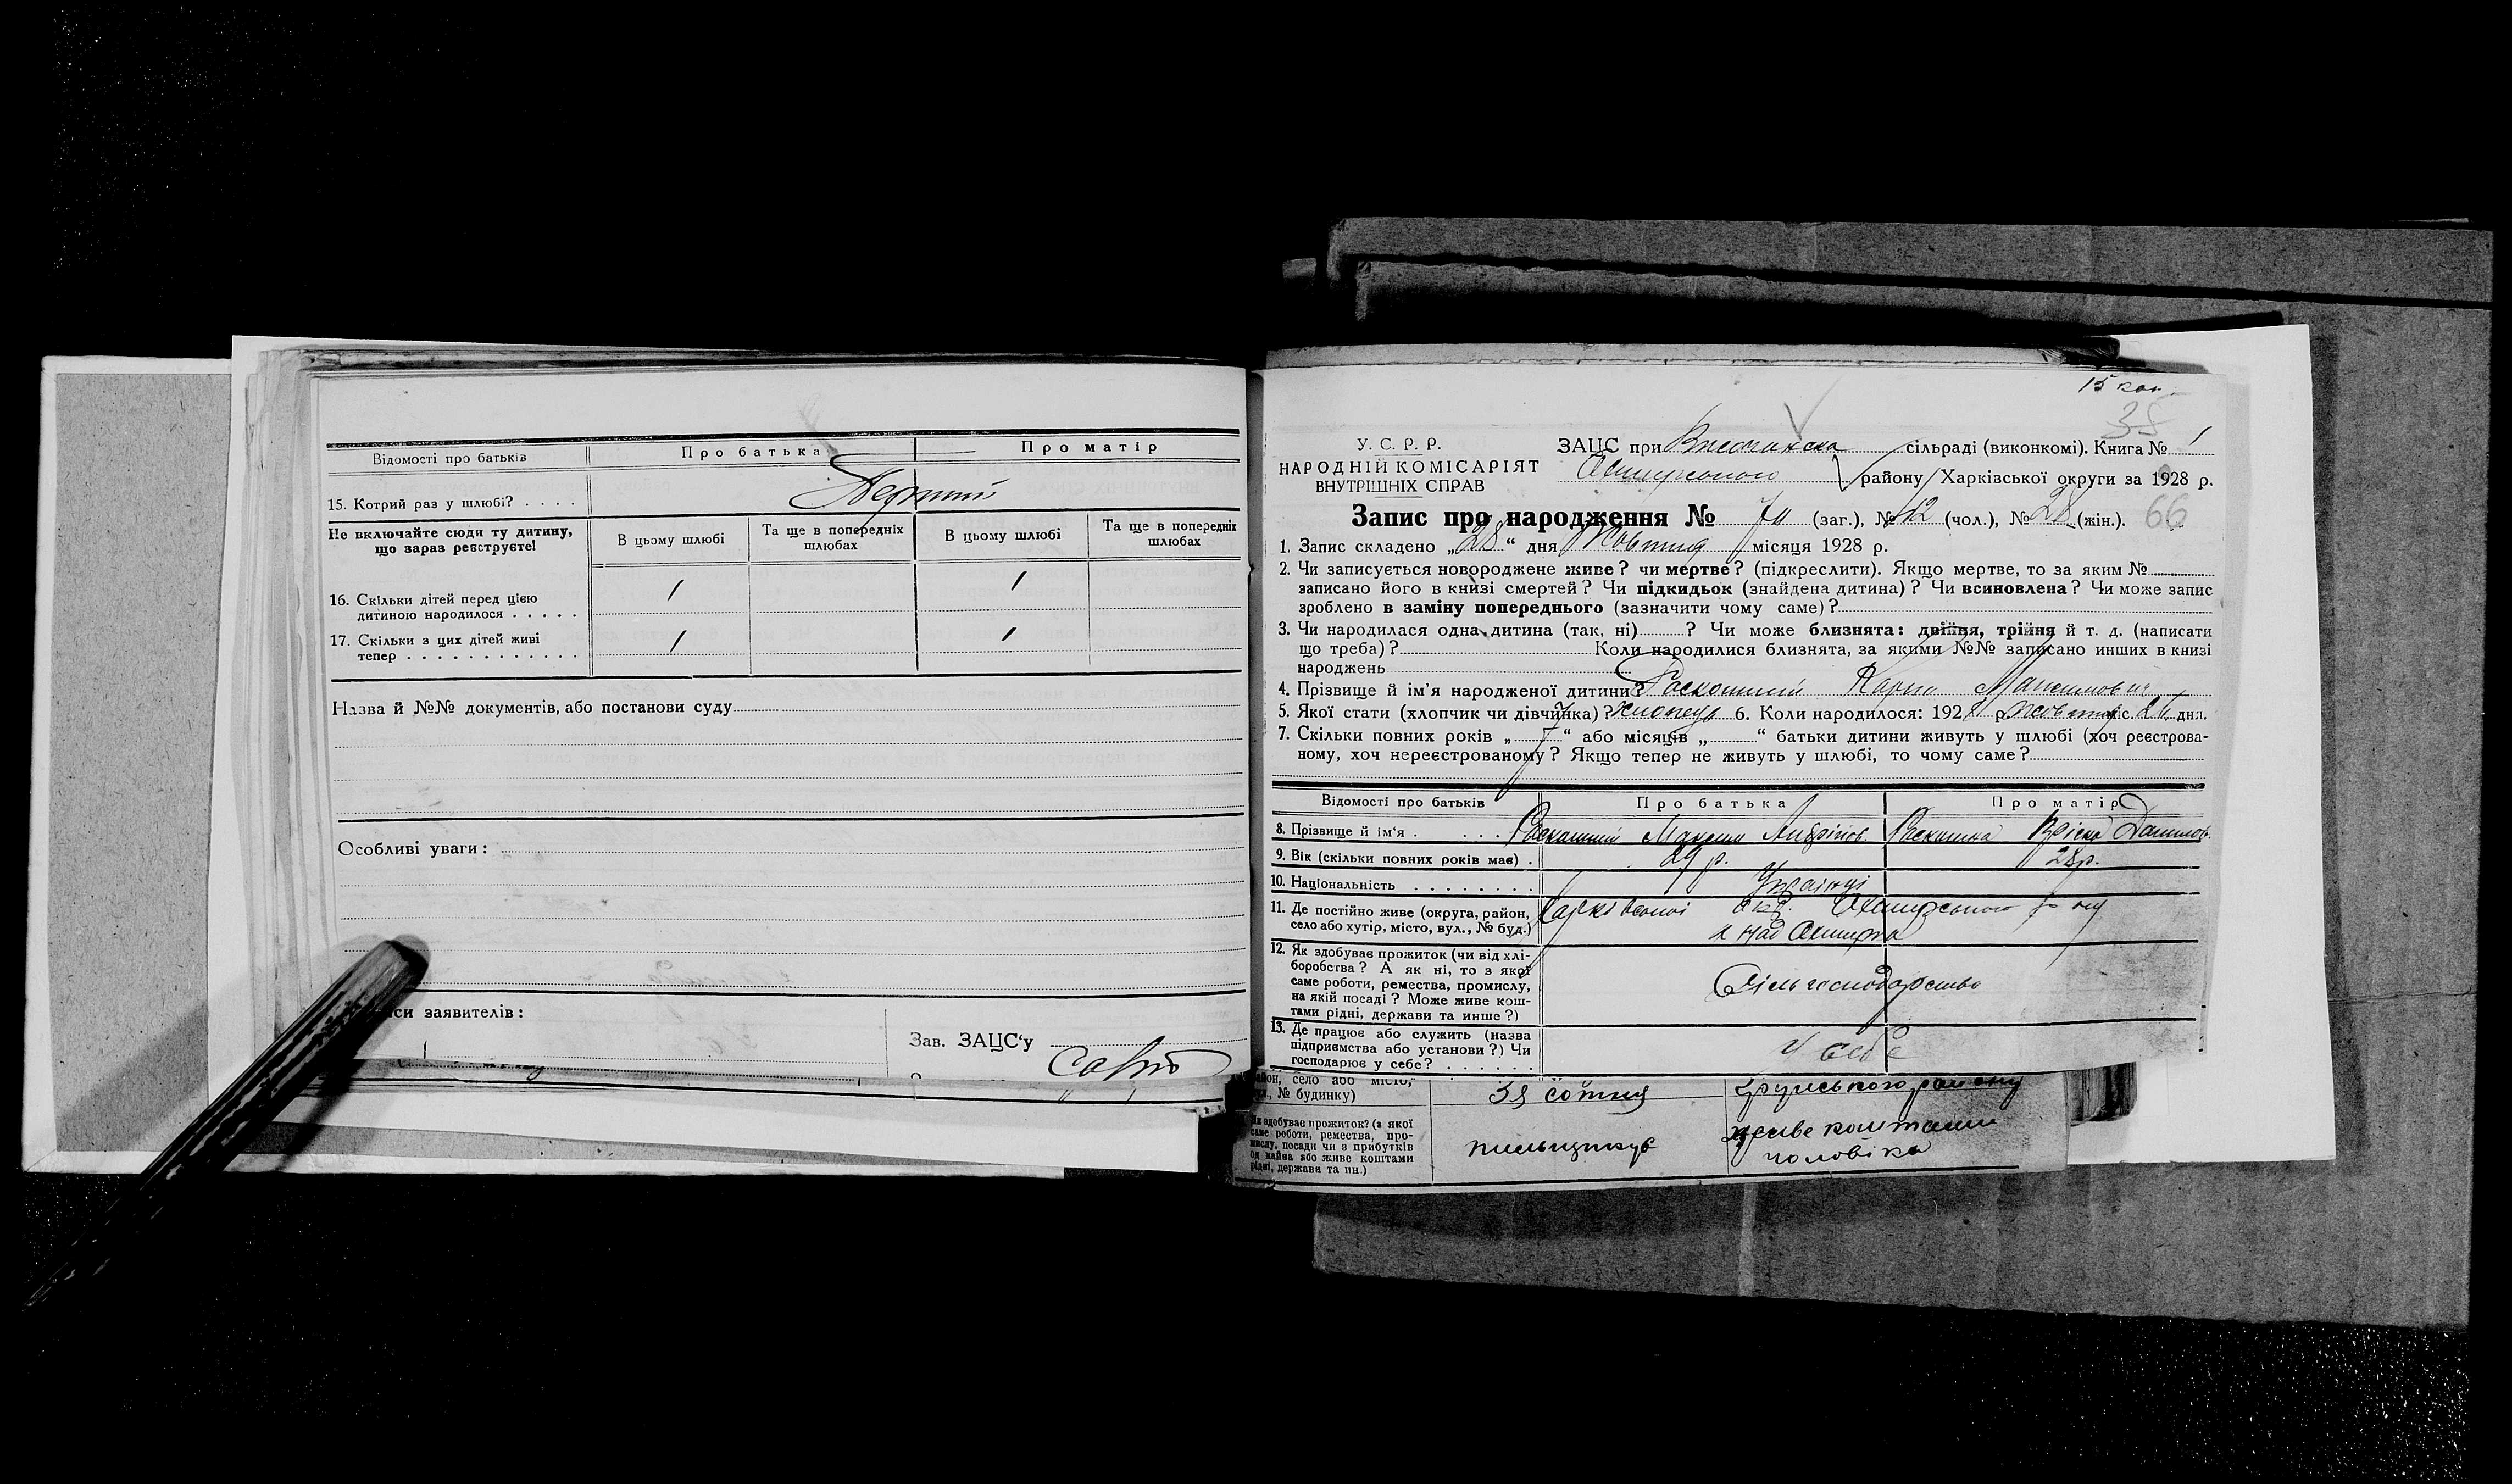 Відомості про батьків Про батька Про матір
15. Котрий раз у шлюбі? . . . . Первий
Не включайте сюди ту дитину, що зараз реєструєте!
В цьому шлюбі Та ще в попередніх шлюбах В цьому шлюбі Та ще в попередніх шлюбах
16. Скільки дітей перед цією
дитиною народилося . . . . . 1 1
17. Скільки з цих дітей живі
тепер . . . . . . . . . . . . 1 1
Назва й №№ документів, або постанови суду
Особливі уваги:
си заявителів:
Зав. ЗАЦС'у
15 коп
35
У. С. Р. Р.
НАРОДНІЙ КОМІСАРІЯТ
ВНУТРІШНІХ СПРАВ
ЗАЦС при сільраді (виконкомі). Книга № 1
району Харківської округи за 1928 р.
Запис про народження № 70 (заг.), № 42 (чол.), № 28 (жін.). 66
1. Запис складено „28“ дня Жовтня місяця 1928 р.
2. Чи записується новороджене живе? чи мертве? (підкреслити). Якщо мертве, то за яким №
записано його в книзі смертей? Чи підкидьок (знайдена дитина)? Чи всиновлена? Чи може запис
зроблено в заміну попереднього (зазначити чому саме)?
3. Чи народилася одна дитина (так, ні) ? Чи може близнята: двійня, трійня й т. д. (написати
що треба)? Коли народилися близнята, за якими №№ записано инших в книзі
народжень
4. Прізвище й ім'я народженої дитини? Роскошний Карпо Максимович
5. Якої стати (хлопчик чи дівчинка)? хлопець 6. Коли народилося: 1928 р. Жовтня міс. 26 дня.
7. Скільки повних років „7“ або місяців „ “ батьки дитини живуть у шлюбі (хоч реєстрова-
ному, хоч нереєстрованому? Якщо тепер не живуть у шлюбі, то чому саме?
Відомості про батьків Про батька Про матір
8. Прізвище й ім'я . . . . . Роскошний Максим Андрійов. Данилов.
9. Вік (скільки повних років має) . 29 р. 28 р.
10. Національність . . . . . . . . Українці
11. Де постійно живе (округа, район,
село або хутір, місто, вул., № буд.)
Харківської окр. Охтирського р-ну
х над Охтирка
12. Як здобуває прожиток (чи від хлі-
боробства? А як ні, то з якої
саме роботи, ремества, промислу,
на якій посаді? Може живе кош-
тами рідні, держави та инше?)
Сільгосподарство
13. Де працює або служить (назва
підприємства або установи?) Чи
господарює у себе? . . . . . .
У себе
район, село або місто,
вул., № будинку)
38 сотня
району
Як здобуває прожиток? (з якої
саме роботи, ремества, про-
мислу, посади чи з прибутків
од майна або живе коштами
рідні, держави та ин.)
живе коштами
чоловіка